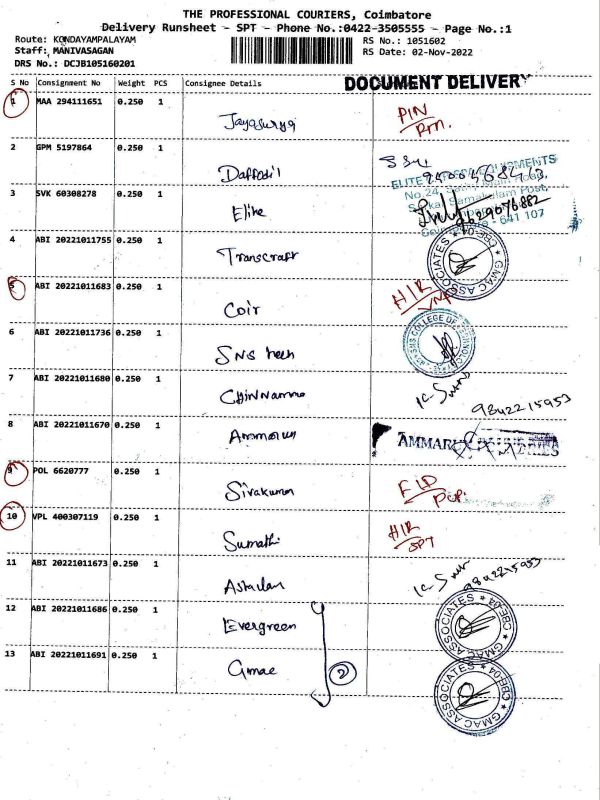 THE PROFESSIONAL COURIERS, Coimbatore
Delivery Runsheet - SPT - Phone No.:0422-3505555 - Page No.:1
Route: KONDAYAMPALAYAM
Staff: MANIVASAGAN
DRS No.: DCJB105160201
RS No.: 1051602
RS Date: 02-Nov-2022
S No Consignment No Weight PCS Consignee Details DOCUMENT DELIVERY
1 MAA 294111651 0.250 1 Jayasurya PIN
2 GPM 5197864 0.250 1 Daffodil
3 SVK 60308278 0.250 1 Elite 641 107
4 ABI 20221011755 0.250 1 Transcraft GMAC ASSOCIATES * CBE-04 *
5 ABI 20221011683 0.250 1 Coir HIR
6 ABI 20221011736 0.250 1 SNS tech SNS COLLEGE OF
7 ABI 20221011680 0.250 1 Chinnamma 9842215953
8 ABI 20221011670 0.250 1 Ammarun AMMARUN
9 POL 6620777 0.250 1 Sivakumar
10 VPL 400307119 0.250 1 Sumathi HIR SPT
11 ABI 20221011673 0.250 1 9842215953
12 ABI 20221011686 0.250 1 Evergreen GMAC ASSOCIATES * CBE-04 *
13 ABI 20221011691 0.250 1 Gmac 2 GMAC ASSOCIATES * CBE-04 *